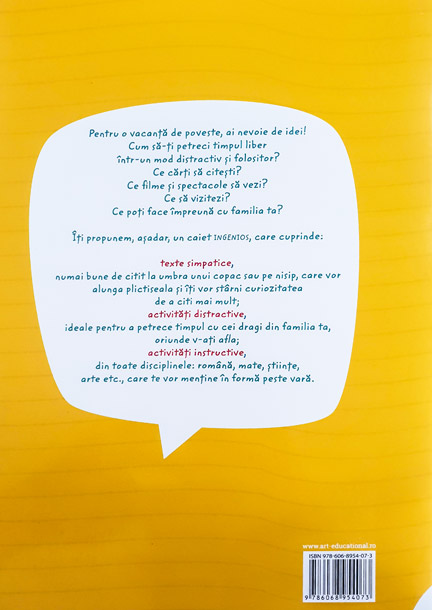 Pentru o vacanță de poveste, ai nevoie de idei!
Cum să-ți petreci timpul liber
într-un mod distractiv și folositor?
Ce cărți să citești?
Ce filme și spectacole să vezi?
Ce să vizitezi?
Ce poți face împreună cu familia ta?
Îți propunem, așadar, un caiet INGENIOS, care cuprinde:
texte simpatice,
numai bune de citit la umbra unui copac sau pe nisip, care vor
alunga plictiseala și îți vor stârni curiozitatea
de a citi mai mult;
activități distractive,
ideale pentru a petrece timpul cu cei dragi din familia ta,
oriunde v-ați afla;
activități instructive,
din toate disciplinele: română, mate, științe,
arte etc., care te vor menține în formă peste vară.
www.art-educational.ro
ISBN 978-606-8954-07-3
9 786068 954073